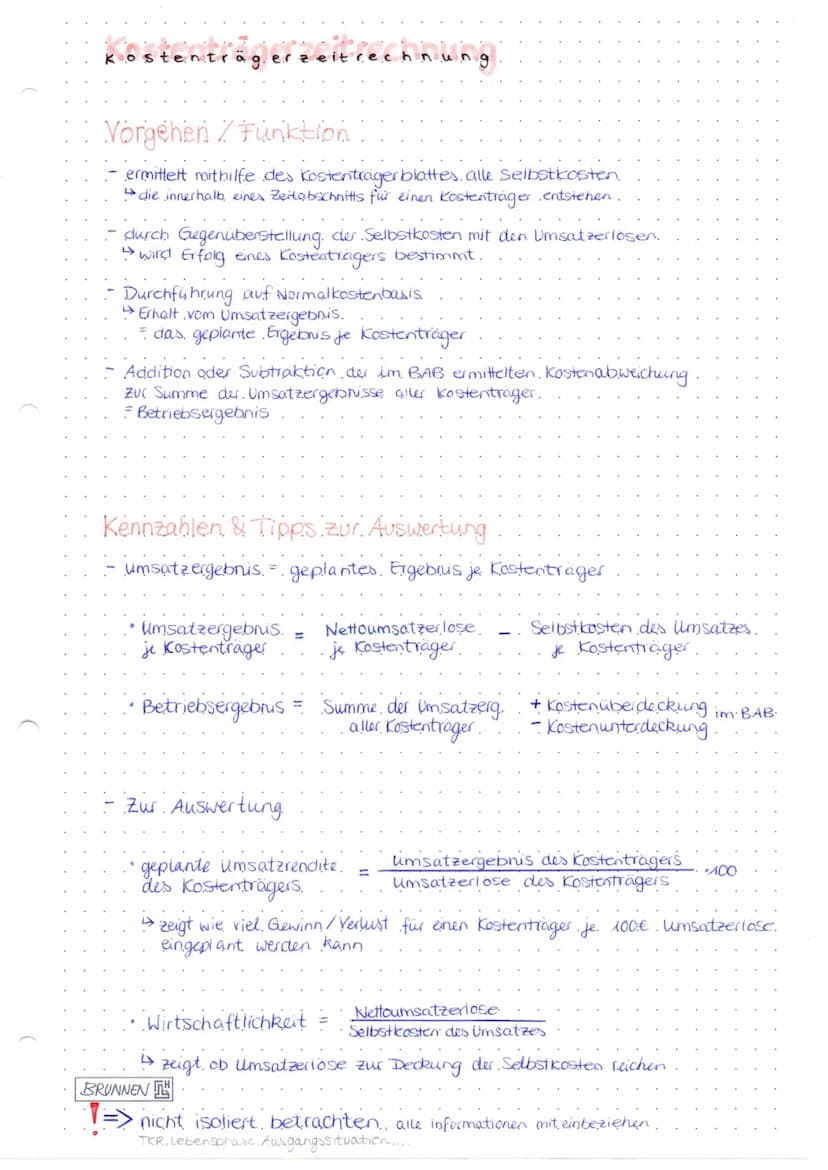 Kostenträgerzeitrechnung
Vorgehen / Funktion
- ermittelt mithilfe des Kostenträgerblattes alle Selbstkosten
↳ die innerhalb eines Zeitabschnitts für einen Kostenträger entstehen
- durch Gegenüberstellung der Selbstkosten mit den Umsatzerlösen
↳ wird Erfolg eines Kostenträgers bestimmt
- Durchführung auf Normalkostenbasis
↳ Erhalt vom Umsatzergebnis
= das geplante Ergebnis je Kostenträger
- Addition oder Subtraktion der im BAB ermittelten Kostenabweichung
zur Summe der Umsatzergebnisse aller Kostenträger
= Betriebsergebnis
Kennzahlen & Tipps zur Auswertung
- Umsatzergebnis = geplantes Ergebnis je Kostenträger
• Umsatzergebnis = Nettoumsatzerlöse - Selbstkosten des Umsatzes
je Kostenträger je Kostenträger je Kostenträger
• Betriebsergebnis = Summe der Umsatzerg. + Kostenüberdeckung im BAB
aller Kostenträger - Kostenunterdeckung
- Zur Auswertung
• geplante Umsatzrendite = Umsatzergebnis des Kostenträgers ·100
des Kostenträgers Umsatzerlöse des Kostenträgers
↳ zeigt wie viel Gewinn/Verlust für einen Kostenträger je 100€ Umsatzerlöse
eingeplant werden kann
• Wirtschaftlichkeit = Nettoumsatzerlöse
Selbstkosten des Umsatzes
↳ zeigt ob Umsatzerlöse zur Deckung der Selbstkosten reichen
BRUNNEN
! => nicht isoliert betrachten, alle informationen miteinbeziehen
TKR, Lebensphase, Ausgangssituation,...